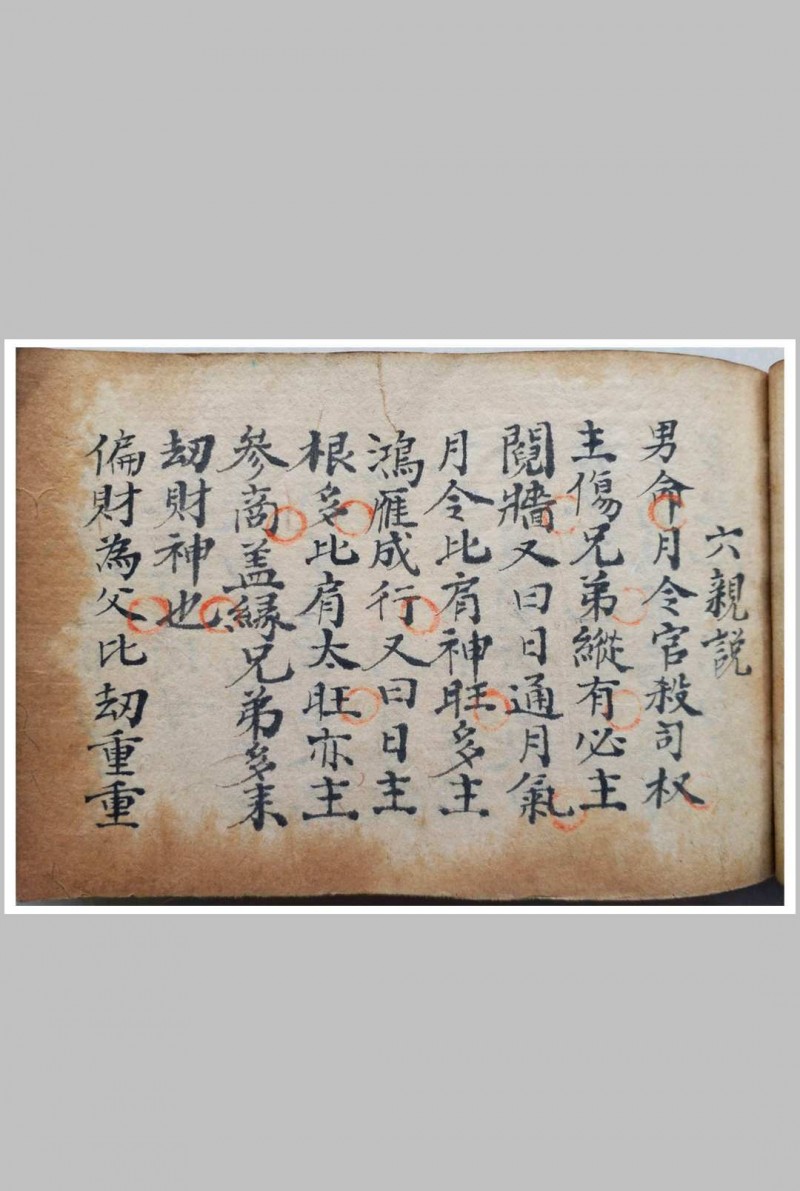 六親說
男命月令官殺司权
主傷兄弟縱有必主
鬩牆又曰日通月氣
月令比肩神旺多主
鴻雁成行又曰日主
根多比肩太旺亦主
參商盖縁兄弟多耒
刼財神也
偏財為父比刼重重